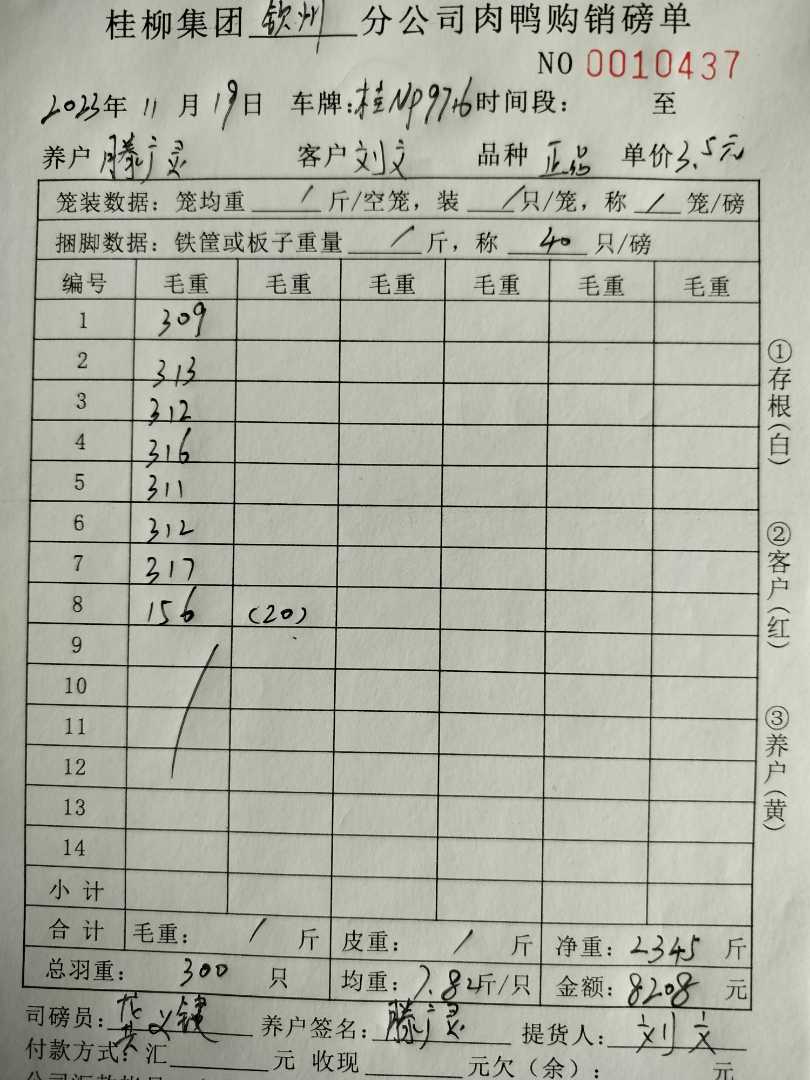 桂柳集团钦州分公司肉鸭购销磅单
NO 0010437
2023年11月19日 车牌:桂NP9776时间段: 至
养户滕广灵 客户刘文 品种 正品 单价3.5元
笼装数据:笼均重 / 斤/空笼,装 /只/笼,称 / 笼/磅
捆脚数据:铁筐或板子重量 / 斤,称 40 只/磅
编号 毛重 毛重 毛重 毛重 毛重 毛重
1 309
2 313
3 312
4 316
5 311
6 312
7 317
8 156 (20)
9
10
11
12
13
14
小计
合计 毛重: / 斤 皮重: / 斤 净重:2345斤
总羽重: 300 只 均重:7.82斤/只 金额:8208元
司磅员: 养户签名:滕广灵 提货人:刘文
付款方式:汇 元 收现 元欠(余): 元
①存根(白) ②客户(红) ③养户(黄)